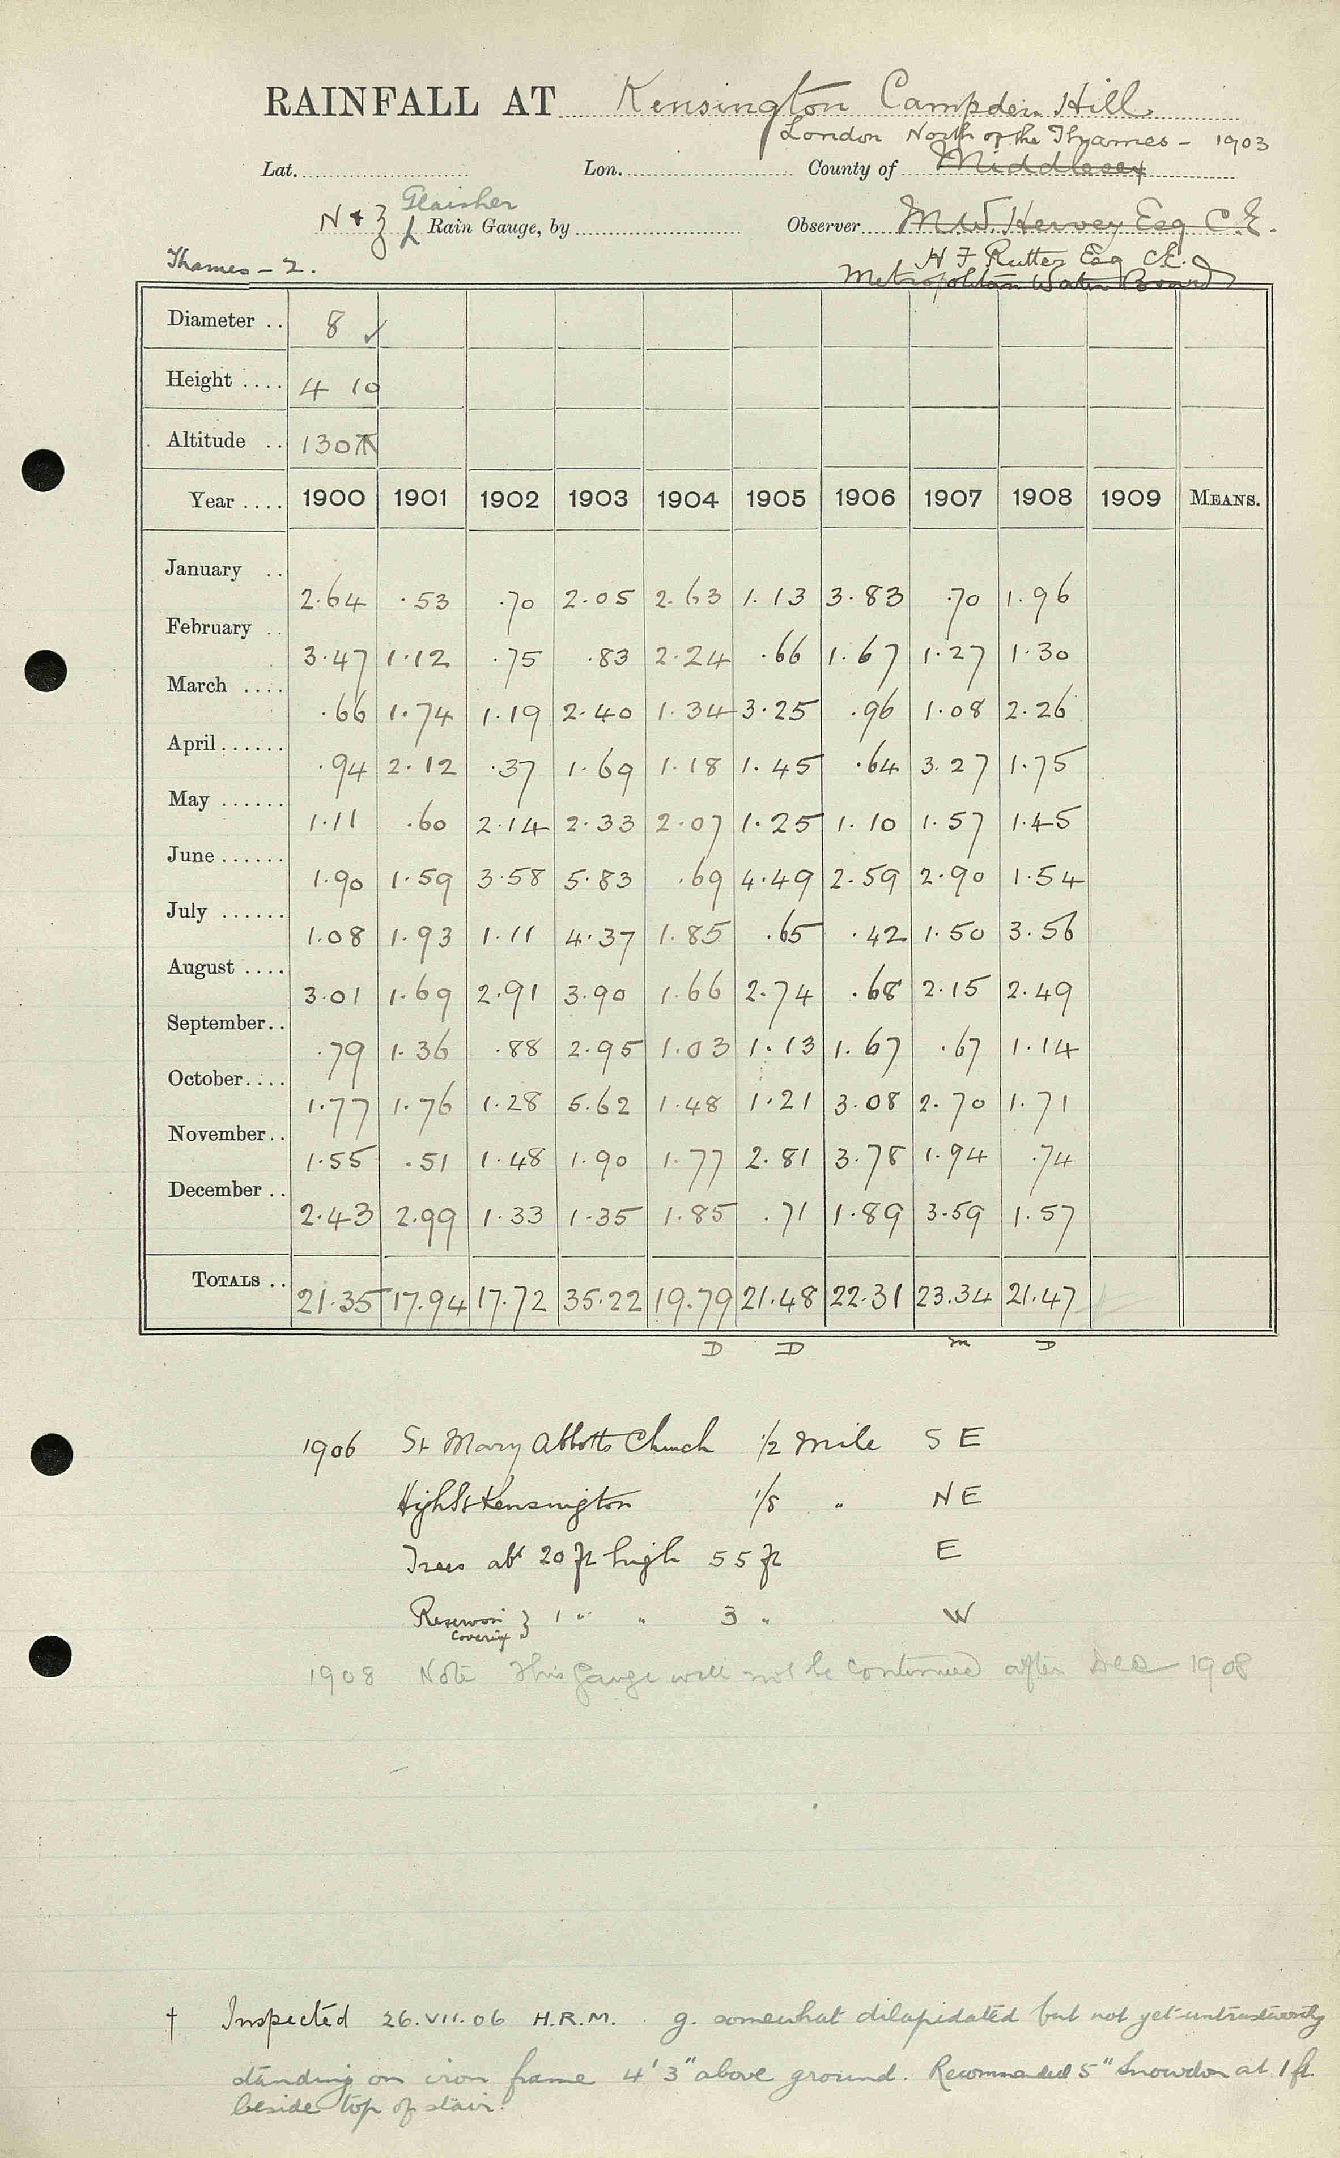 RAINFALL AT Kensington Campden Hill.
London North of the Thames - 1903
Lat. Lon. County of Middlesex
Glaisher
N & Z Rain Gauge, by Observer M.W. Hervey Esq C.E.
Thames - 2. H F Rutter Esq C.E.
Metropolitan Water Board
Diameter .. 8 ✓
Height .... 4 10
Altitude .. 130
Year .... 1900 1901 1902 1903 1904 1905 1906 1907 1908 1909 MEANS.
January .. 2.64 .53 .70 2.05 2.63 1.13 3.83 .70 1.96
February .. 3.47 1.12 .75 .83 2.24 .66 1.67 1.27 1.30
March .... .66 1.74 1.19 2.40 1.34 3.25 .96 1.08 2.26
April ...... .94 2.12 .37 1.69 1.18 1.45 .64 3.27 1.75
May ...... 1.11 .60 2.14 2.33 2.07 1.25 1.10 1.57 1.45
June ...... 1.90 1.59 3.58 5.83 .69 4.49 2.59 2.90 1.54
July ...... 1.08 1.93 1.11 4.37 1.85 .65 .42 1.50 3.56
August .... 3.01 1.69 2.91 3.90 1.66 2.74 .68 2.15 2.49
September.. .79 1.36 .88 2.95 1.03 1.13 1.67 .67 1.14
October.... 1.77 1.76 1.28 5.62 1.48 1.21 3.08 2.70 1.71
November.. 1.55 .51 1.48 1.90 1.77 2.81 3.78 1.94 .74
December .. 2.43 2.99 1.33 1.35 1.85 .71 1.89 3.59 1.57
TOTALS .. 21.35 17.94 17.72 35.22 19.79 21.48 22.31 23.34 21.47
D D m D
1906 St Mary Abbotts Church 1/2 mile S E
High St Kensington 1/8 " N E
Trees abt 20 ft high 55 ft E
Reservoir } 1 " " 3 " W
Covering
1908 Note This gauge will not be continued after Dec 1908
† Inspected 26.VII.06 H.R.M. g. somewhat dilapidated but not yet untrustworthy
standing on iron frame 4' 3" above ground. Recommended 5" Snowdon at 1 ft.
beside top of stair.